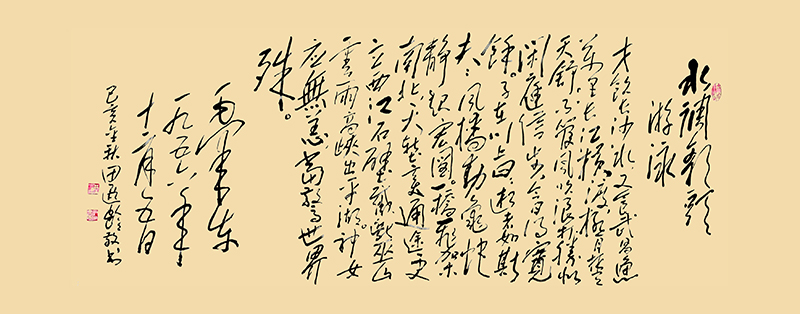 水調歌頭
游泳
才飲長沙水又食武昌魚
萬里長江橫渡極目楚
天舒不管風吹浪打勝似
閑庭信步今日得寬
餘。子在川上曰逝者如斯
夫風檣動龜蛇
静起宏圖。一橋飛架
南北天塹變通途更
立西江石壁截斷巫山
雲雨高峽出平湖。神女
应無恙當驚世界
殊。
毛澤東
一九五六年
十二月五日
己亥金秋田敬书